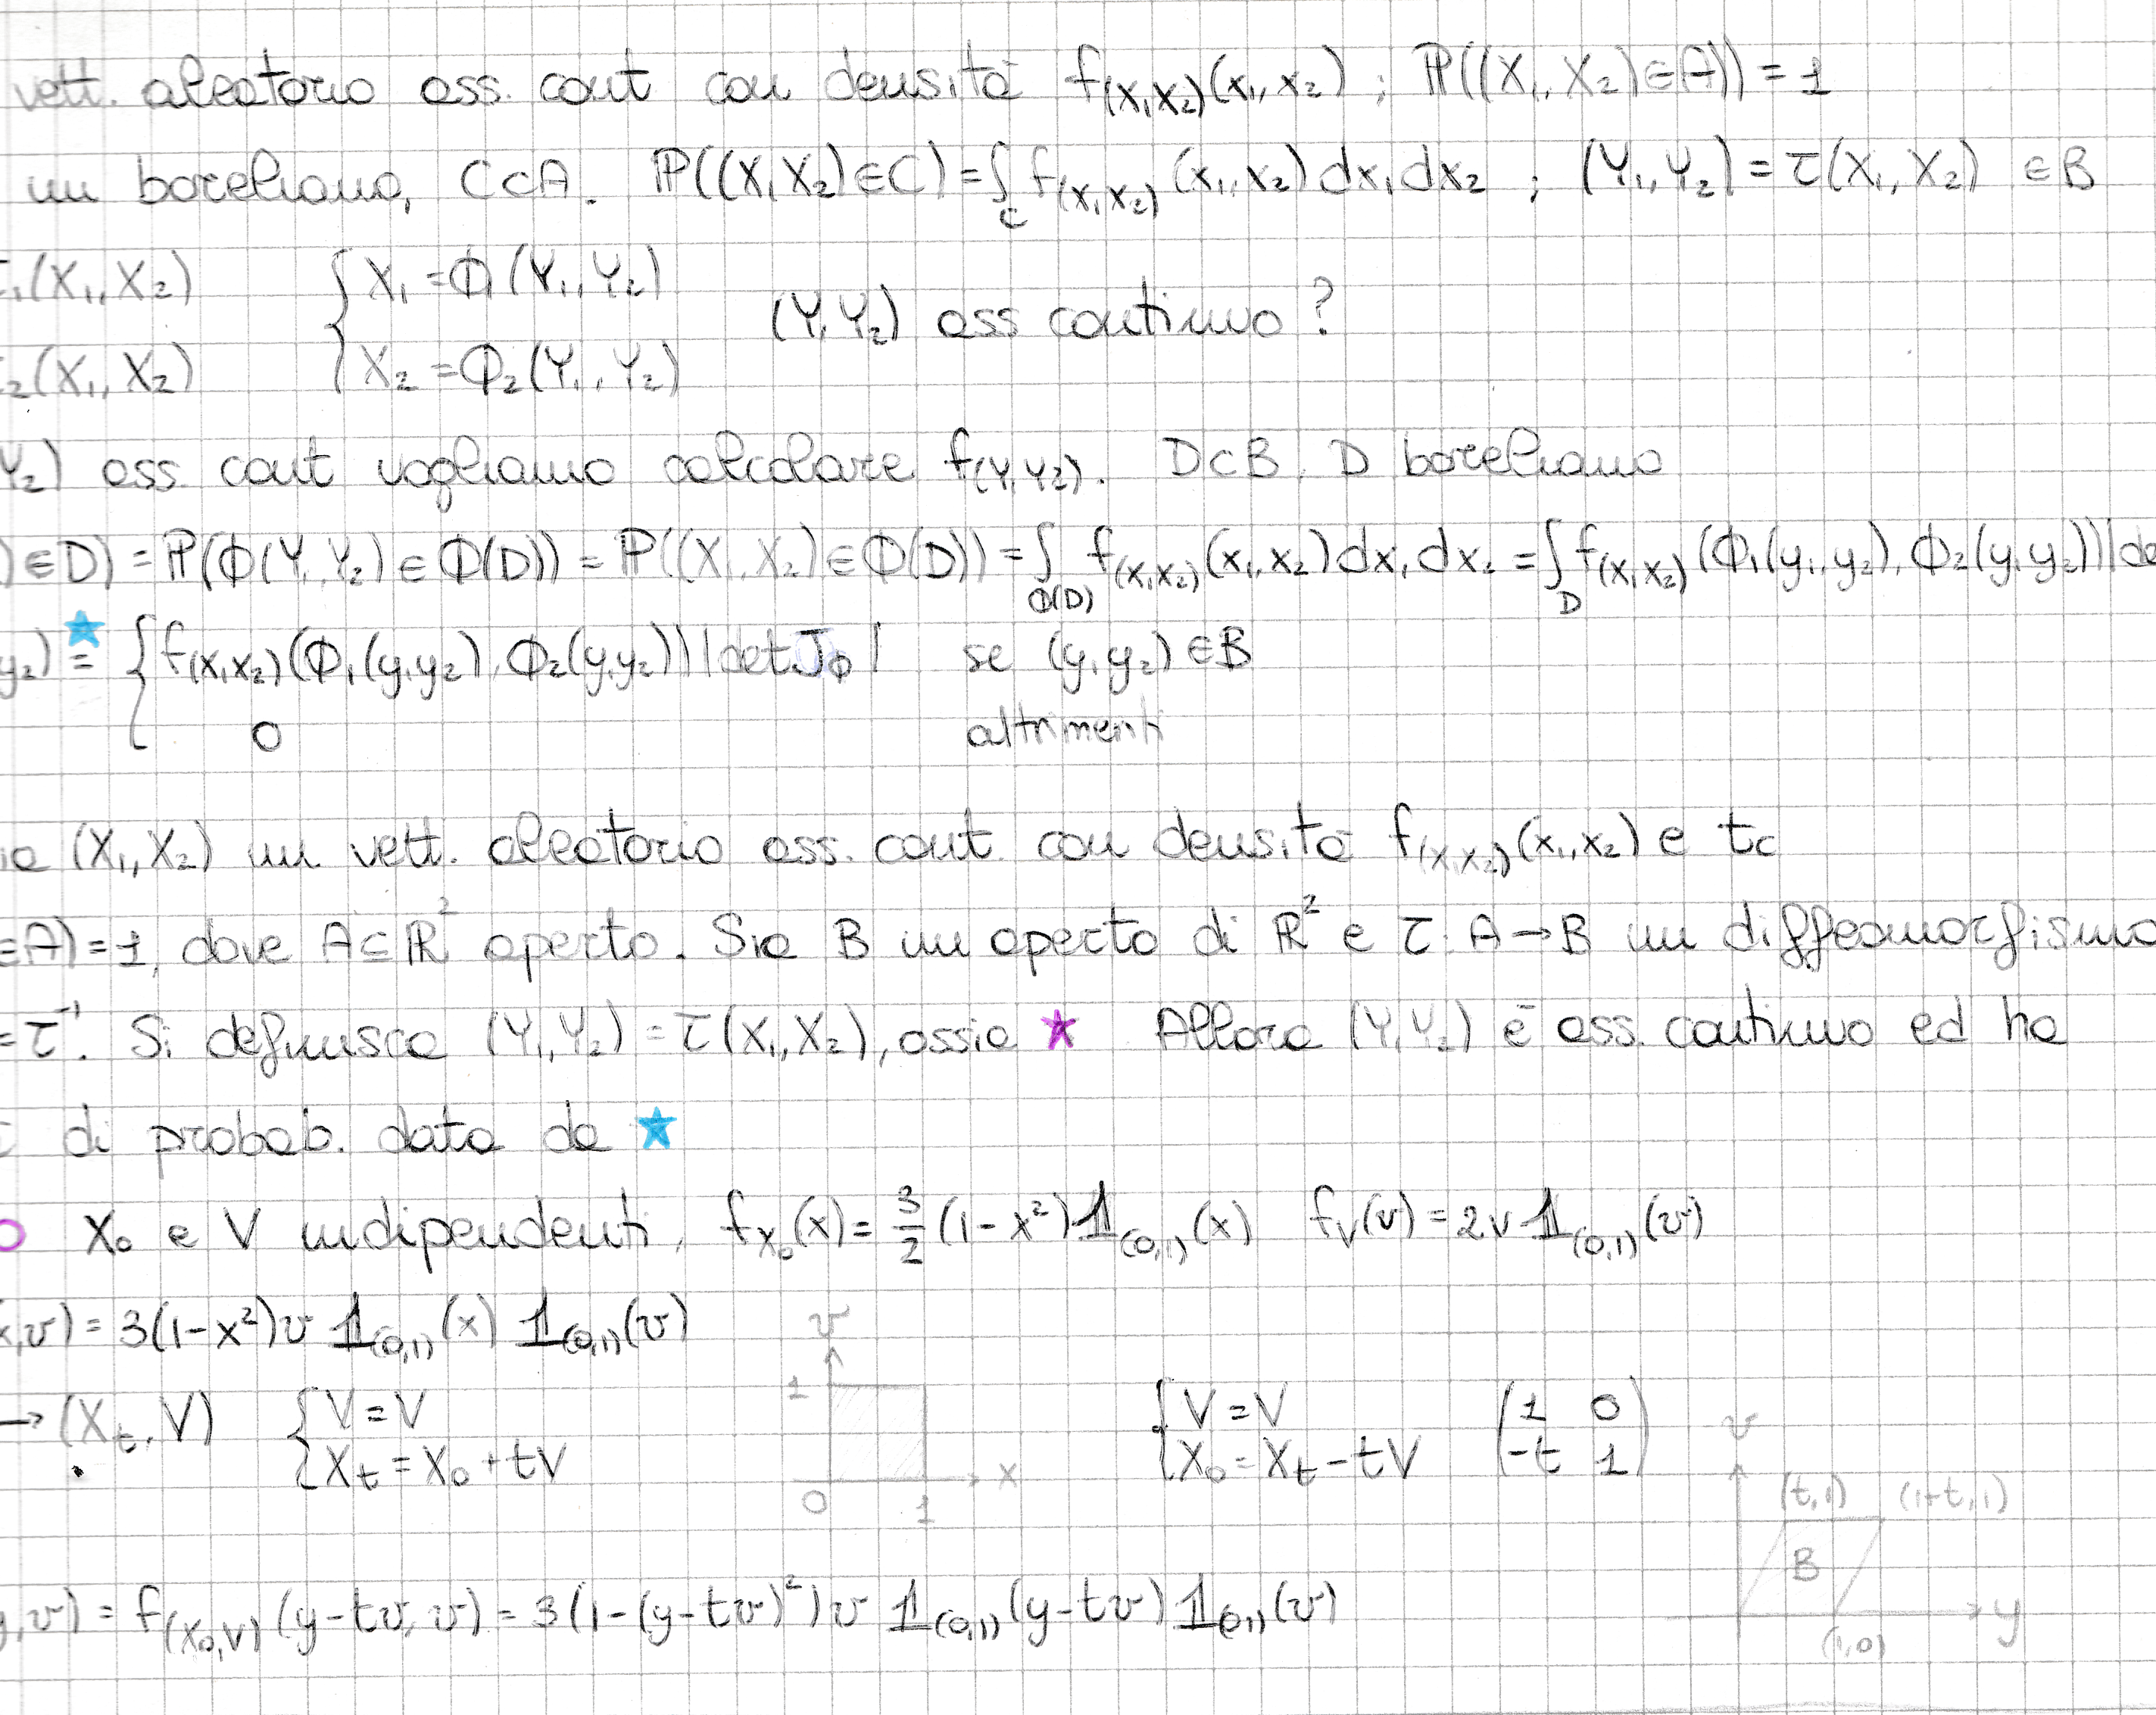 vett. aleatorio ass. cont con densità f(X₁X₂)(x₁,x₂) ; ℙ((X₁,X₂)∈A)) = 1
un boreliano, C⊂A. ℙ((X₁X₂)∈C) = ∫_C f(X₁X₂)(x₁,x₂)dx₁dx₂ ; (Y₁,Y₂) = τ(X₁,X₂) ∈B
₁(X₁,X₂) { X₁ = Φ₁(Y₁,Y₂)
(Y₁Y₂) ass continuo ?
₂(X₁,X₂) X₂ = Φ₂(Y₁,Y₂)
Y₂) ass. cont vogliamo calcolare f(Y₁Y₂). D⊂B, D boreliano
)∈D) = ℙ(Φ(Y₁,Y₂)∈Φ(D)) = ℙ((X₁,X₂)∈Φ(D)) = ∫_Φ(D) f(X₁X₂)(x₁,x₂)dx₁dx₂ = ∫_D f(X₁X₂)(Φ₁(y₁,y₂),Φ₂(y₁y₂))|de
y₂) ★= { f(X₁X₂)(Φ₁(y₁y₂),Φ₂(y₁y₂))|detJ_Φ| se (y₁y₂)∈B
0 altrimenti
ia (X₁,X₂) un vett. aleatorio ass. cont. con densità f(X₁X₂)(x₁,x₂) e tc
∈A)=1, dove A⊆ℝ² aperto. Sia B un aperto di ℝ² e τ: A→B un diffeomorfismo
=τ⁻¹. Si definisca (Y₁,Y₂) = τ(X₁,X₂), ossia ★ Allora (Y₁Y₂) è ass. continuo ed ha
di probab. data da ★
O X₀ e V indipendenti, f_X₀(x) = 3/2 (1-x²)𝟙(0,1)(x) f_V(v) = 2v𝟙(0,1)(v)
x,v) = 3(1-x²)v 𝟙(0,1)(x) 𝟙(0,1)(v)
v
→ (X_t,V) { V = V 1 { V = V (1 0
X_t = X₀ + tV X₀ = X_t - tV -t 1)
x
0 1
v
(t,1) (1+t,1)
B
y,v) = f(X₀,V)(y-tv,v) = 3(1-(y-tv)²)v 𝟙(0,1)(y-tv)𝟙(0,1)(v)
y
(1,0)